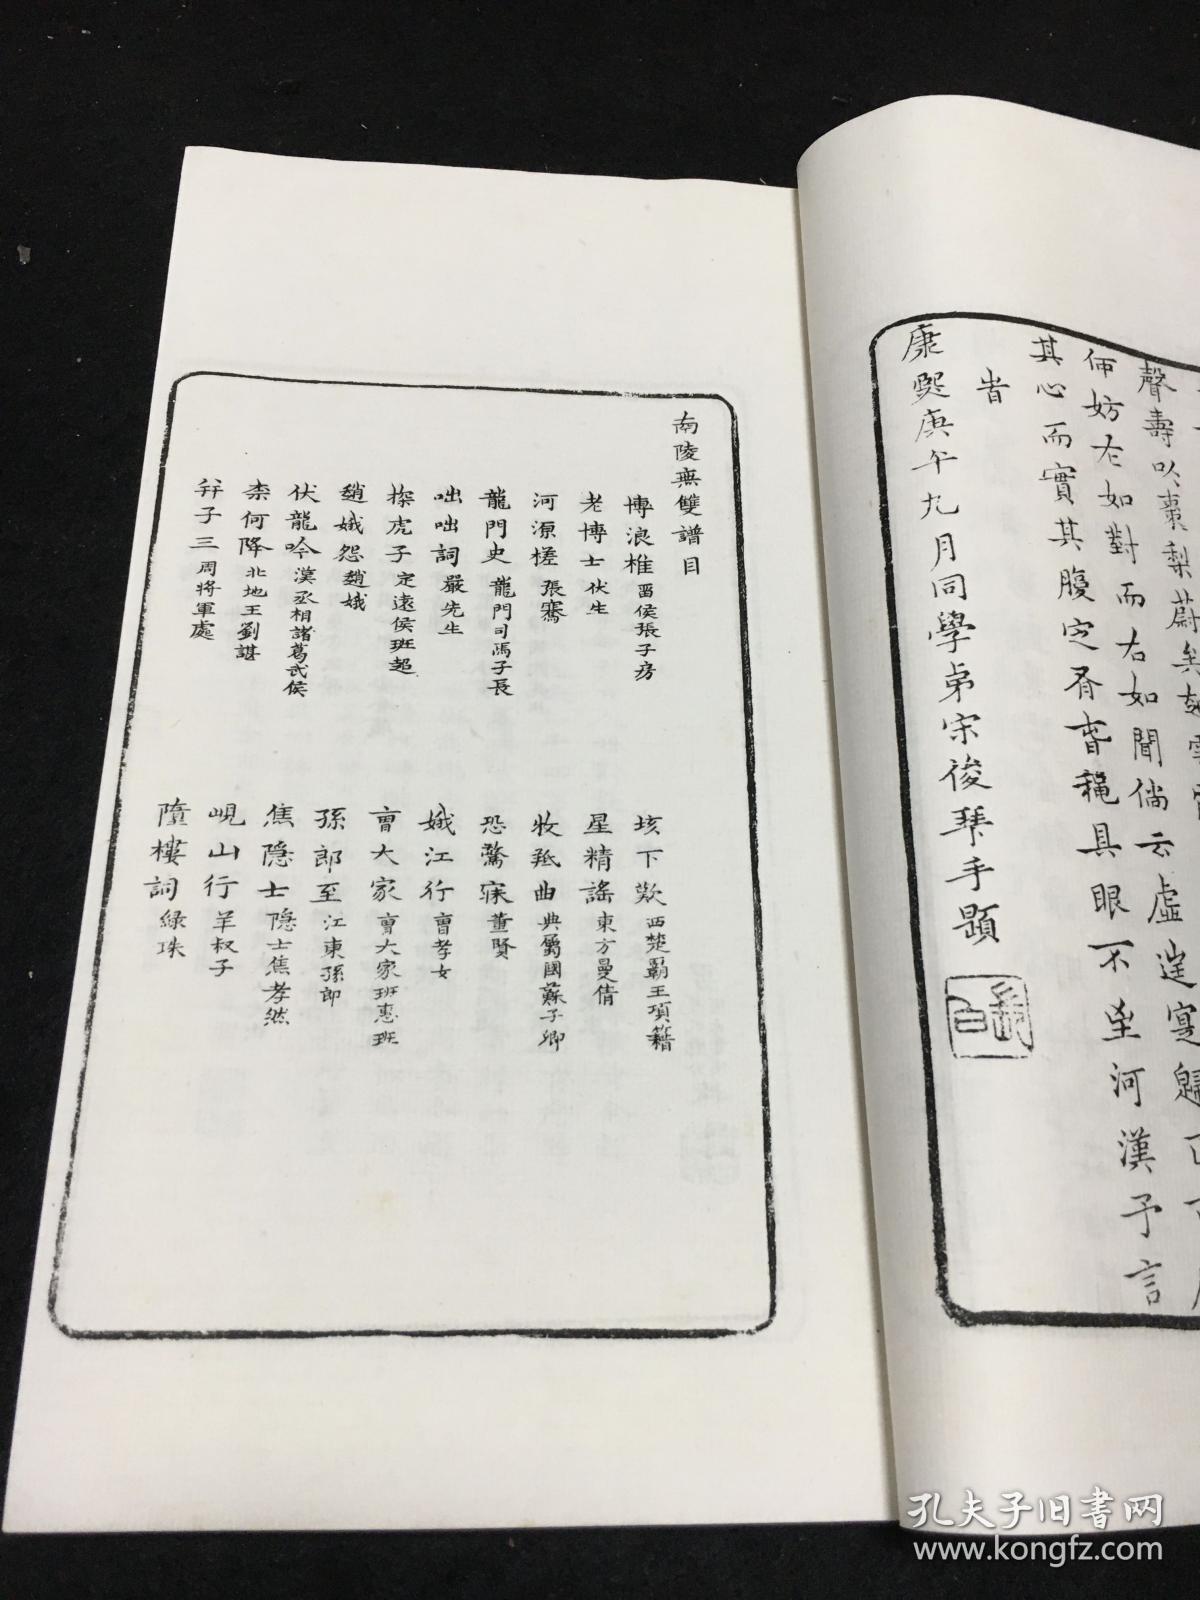 聲壽以棗梨蔚矣
妨左如對而右如聞倘云虛
其心而實其腹定
具眼不至河漢予言
康熙庚午九月同學弟宋俊琴手題
南陵無雙譜目
博浪椎 畱侯張子房
垓下歎 西楚霸王項籍
老博士 伏生
星精謠 東方曼倩
河源槎 張騫
牧羝曲 典屬國蘇子卿
龍門史 龍門司馮子長
恐驚寐 董賢
咄咄詞 嚴先生
娥江行 曹孝女
探虎子 定遠侯班超
曹大家 曹大家班惠班
趙娥怨 趙娥
孫郎至 江東孫郎
伏龍吟 漢丞相諸葛武侯
焦隱士 隱士焦孝然
柰何降 北地王劉諶
峴山行 羊叔子
斧子三 周將軍處
墮樓詞 綠珠
孔夫子旧书网
www.kongfz.com